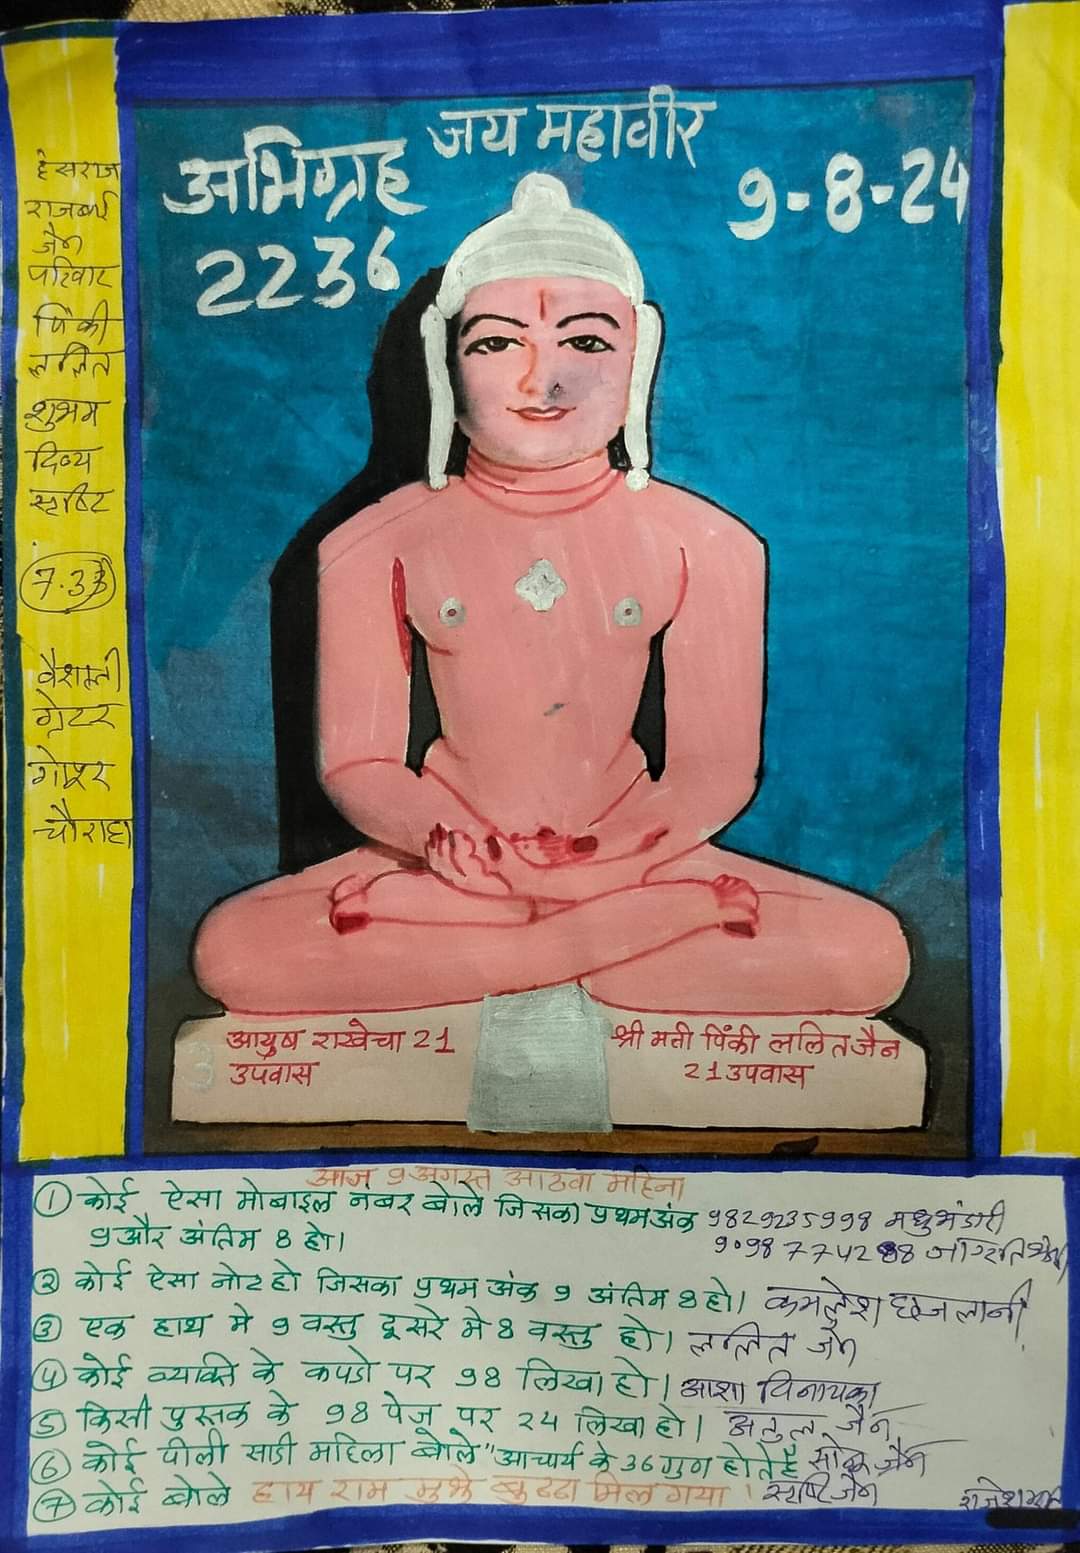 जय महावीर
अभिग्रह
2236
9-8-24
हंसराज
राजबाई
जैन
परिवार
पिंकी
ललित
शुभम
दिव्य
सृष्टि
7.33
वैशाली
ग्रेटर
चौराहा
आयुष राखेचा 21
उपवास
श्री मती पिंकी ललित जैन
21 उपवास
आज 9 अगस्त आठवा महिना
① कोई ऐसा मोबाइल नंबर बोले जिसका प्रथम अंक 9829235998 मधु भंडारी
9 और अंतिम 8 हो।
9098774288
② कोई ऐसा नोट हो जिसका प्रथम अंक 9 अंतिम 8 हो। कमलेश छजलानी
③ एक हाथ मे 9 वस्तु दूसरे मे 8 वस्तु हो। ललित जैन
④ कोई व्यक्ति के कपडो पर 98 लिखा हो। आशा विनायका
⑤ किसी पुस्तक के 98 पेज पर 24 लिखा हो। अतुल जैन
⑥ कोई पीली साडी महिला बोले "आचार्य के 36 गुण होते है जैन
⑦ कोई बोले हाय राम मुझे बुढ्ढा मिल गया। सृष्टि जैन